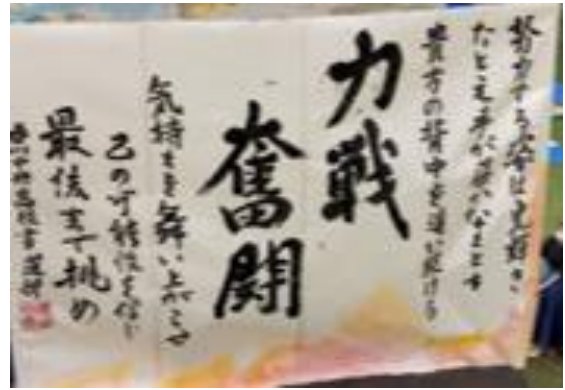 努力する姿は見
たとえ手が届かなくとも
貴方の背中を追い続ける
力戦
奮闘
気持ちを舞い上がらせ
己の可能性を信じ
最後まで挑め
高校書道部